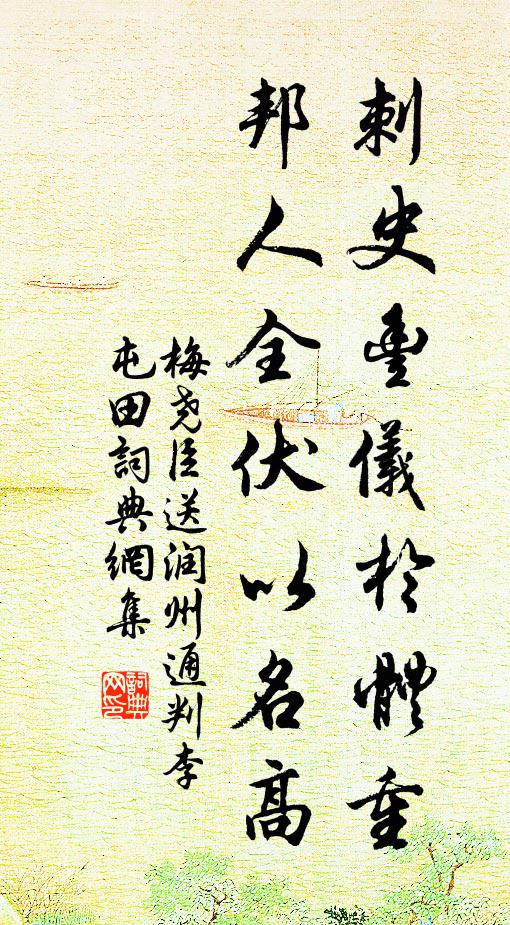 刺史豊儀於體重
邦人全伏以名高
梅尧臣送润州通判李
屯田詞典網集
詞典
网印